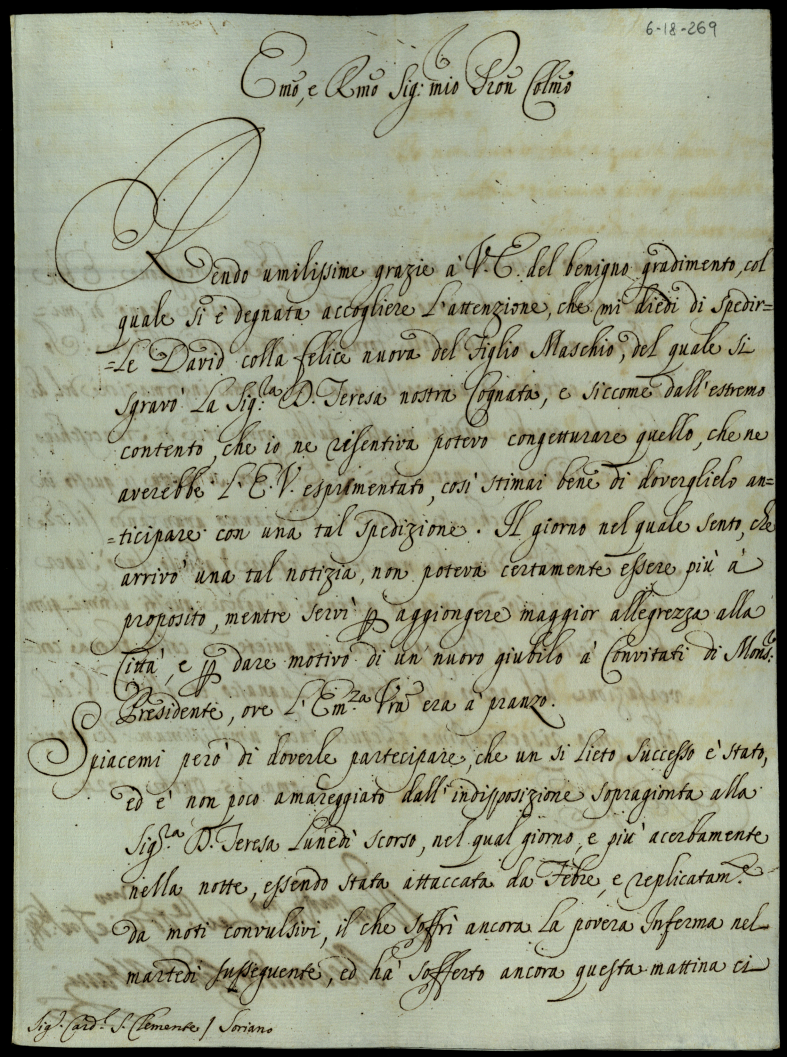 6-18-269
Emo, e Rmo Sig: mio Pron Colmo
Rendo umilissime grazie à V. E. del benigno gradimento, col
quale si è degnata accogliere l'attenzione, che mi diedi di spedir=
=le David colla felice nuova del Figlio Maschio, del quale si
sgravò la Sig.ra D. Teresa nostra Cognata, e siccome dall'estremo
contento, che io ne risentiva potevo congetturare quello, che ne
averebbe l'E. V. esprimentato, così stimai bene di doverglielo an=
=ticipare con una tal spedizione. Il giorno nel quale sento, che
arrivò una tal notizia, non poteva certamente essere più à
proposito, mentre servì p aggiongere maggior allegrezza alla
Città, e p dare motivo di un nuovo giubilo à Convitati di Mons.r
Presidente, ove l'Em.za Vra era à pranzo.
Spiacemi però di doverle partecipare, che un si lieto successo è stato,
ed è non poco amareggiato dall'indisposizione sopragionta alla
Sig.ra D. Teresa Lunedì scorso, nel qual giorno, e più acerbamente
nella notte, essendo stata attaccata da Febre, e replicatam.e
da moti convulsivi, il che soffrì ancora la povera Inferma nel
martedì susseguente, ed hà sofferto ancora questa mattina ci
Sig.r Card.l S. Clemente / Soriano